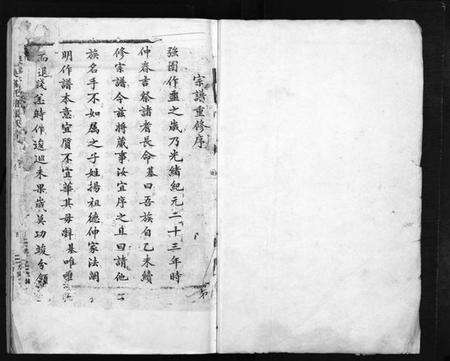 宗譜重修序
強圉作噩之歲乃光緒紀元二十三年時
仲春吉祭諸者長命基曰吾族自乙未續
修宗譜今茲將蕆事汝宜序之且曰請他
族名手不如屬之子姓揚祖德伸家法闡
明作譜本意宜質不宜華其毋辭基唯唯
而退淡怎時作逡巡未果嵗莫功竣分領